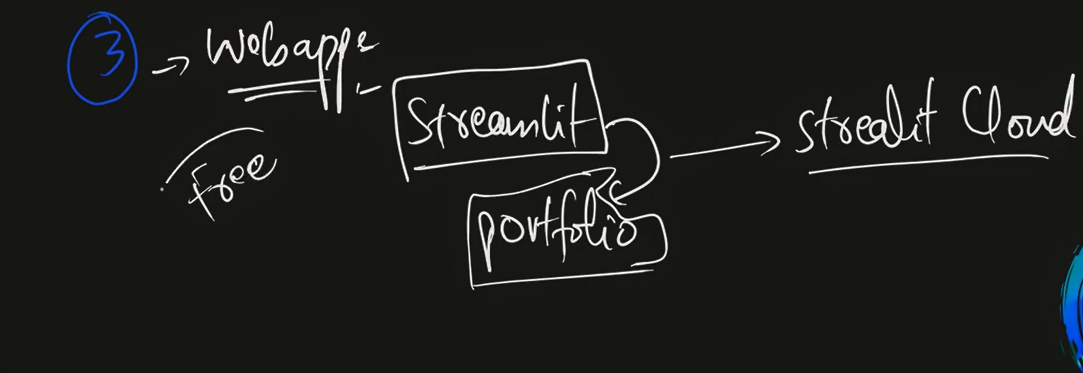 3 → Webapps -
Streamlit → strealit Cloud
Free
portfolio